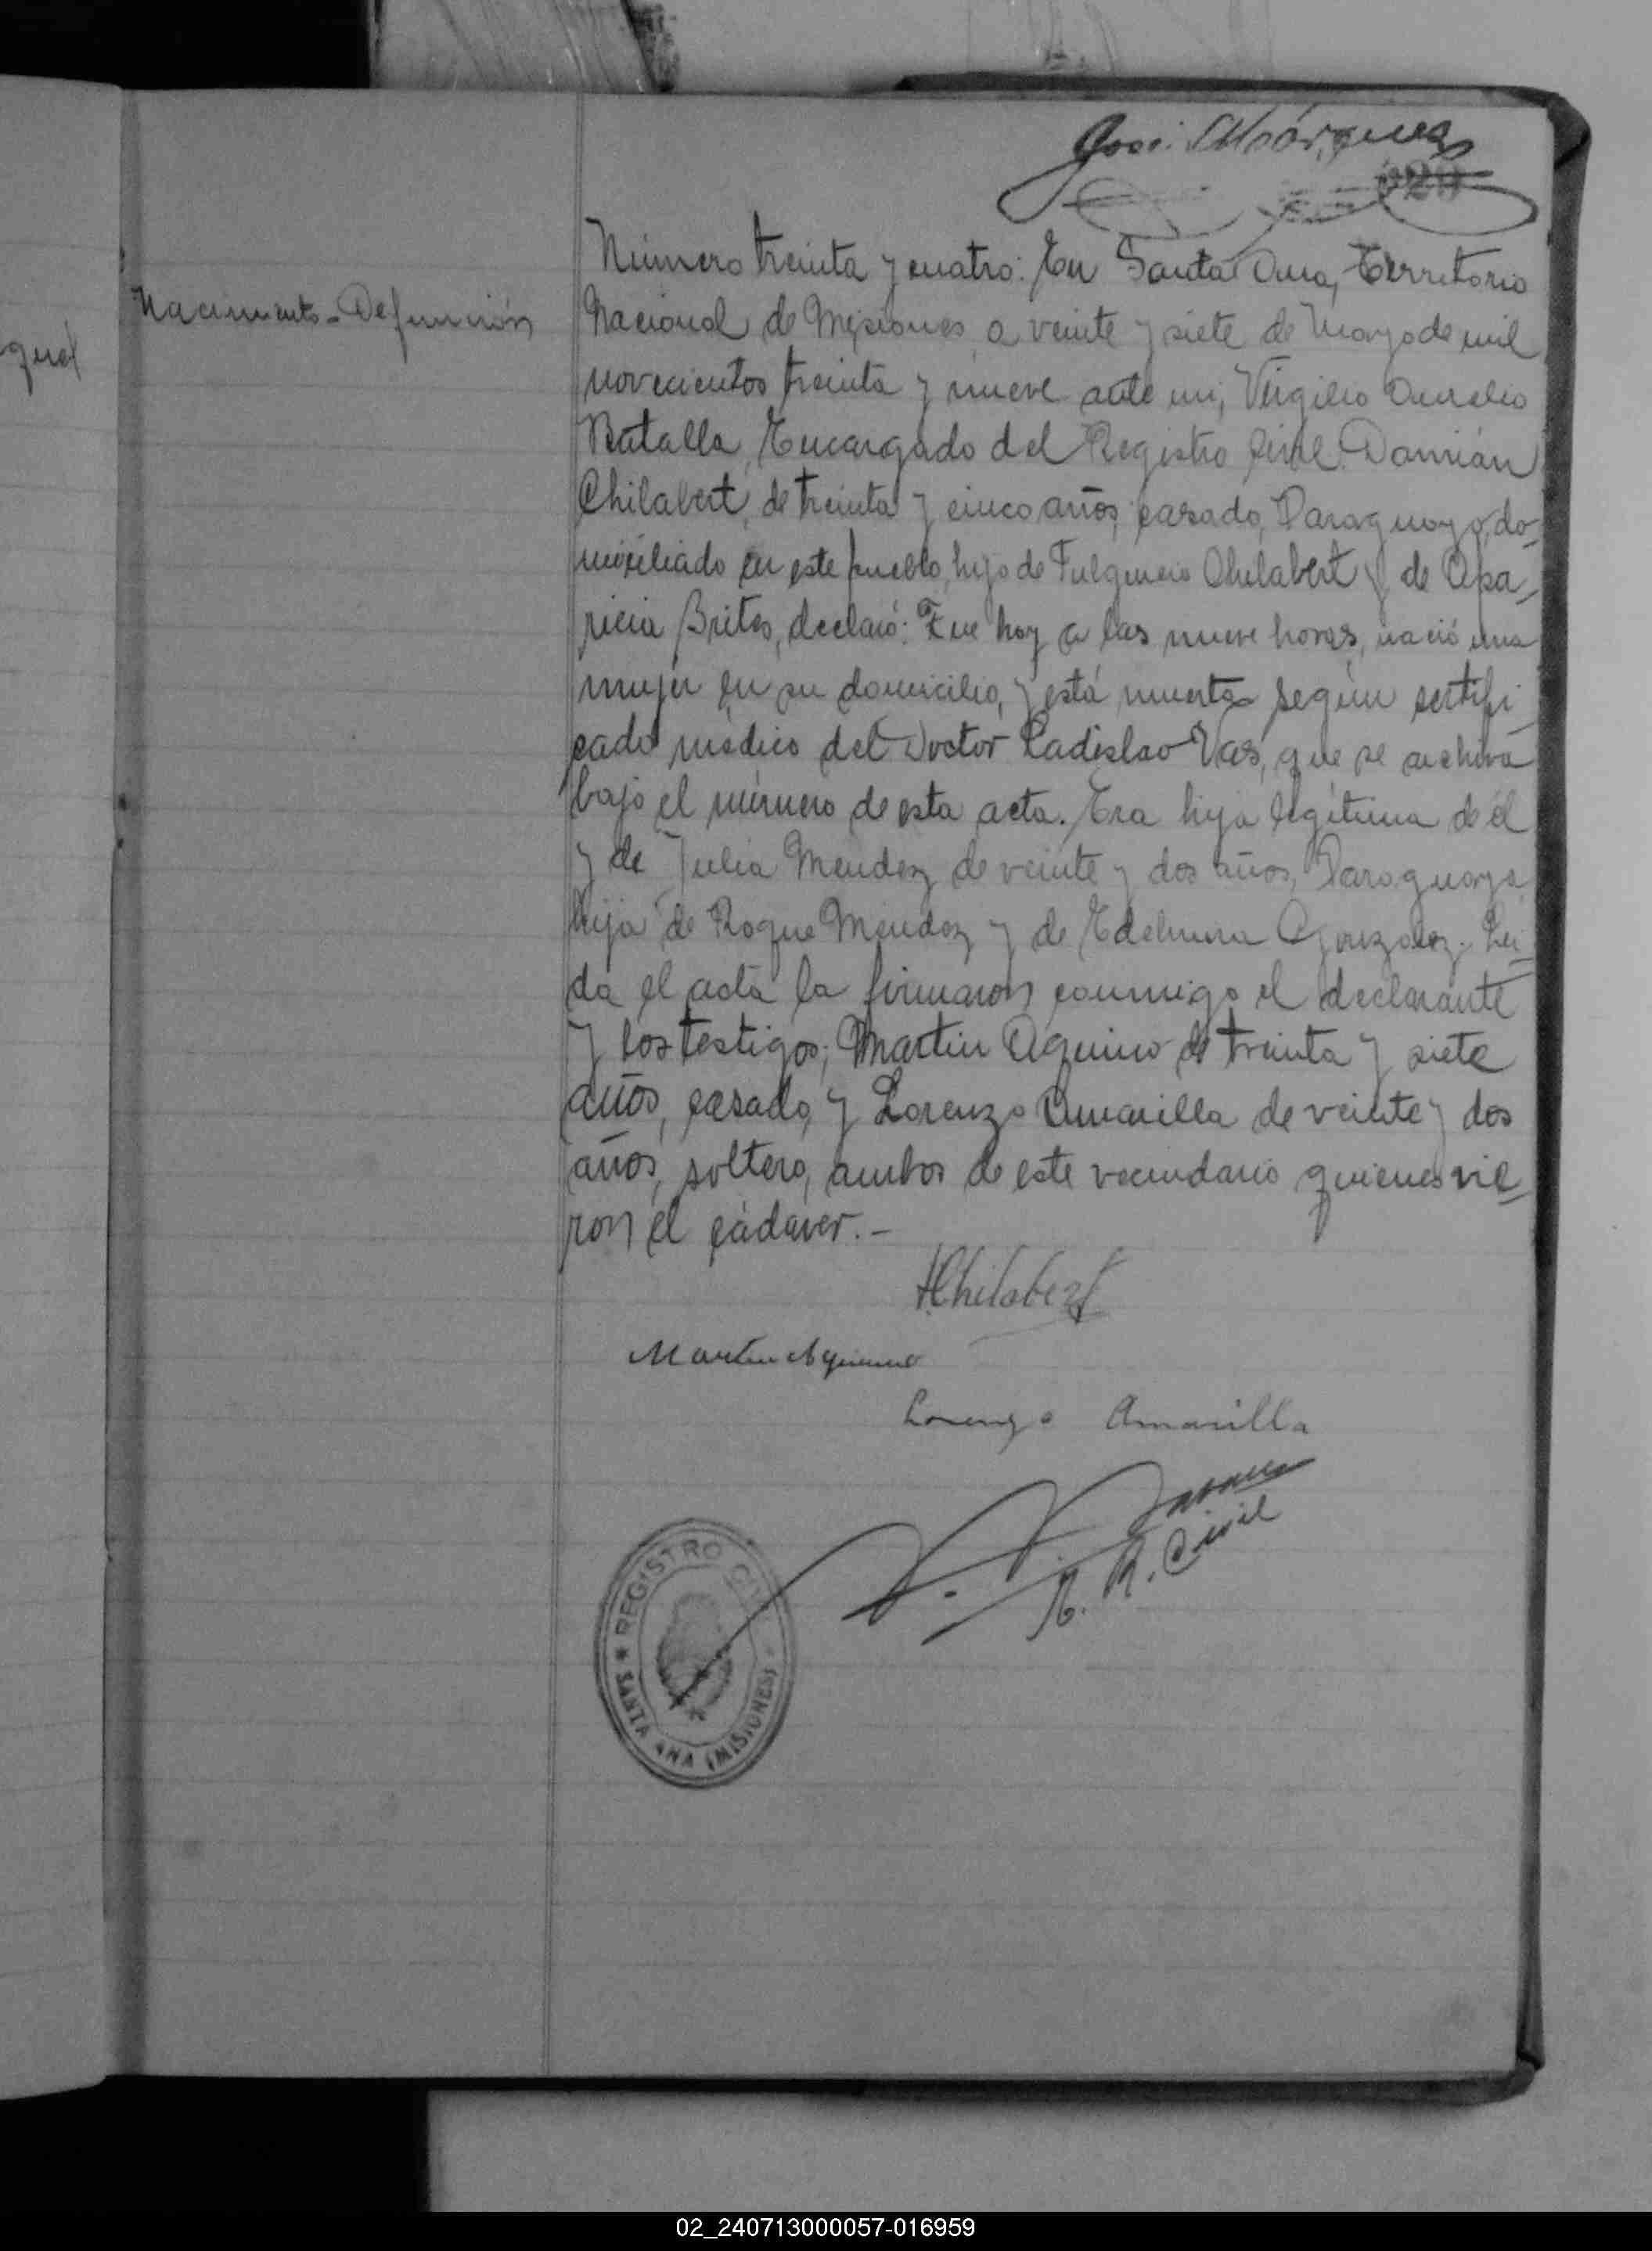 José Márquez
020
Nacimiento-Defunción
Número treinta y cuatro: En Santa Ana, Territorio
Nacional de Misiones, a veinte y siete de Mayo de mil
novecientos treinta y nueve ante mi, Virgilio Aurelio
Batalla, Encargado del Registro Civil. Damián
Chilabert, de treinta y cinco años, casado, Paraguayo, do-
miciliado en este pueblo, hijo de Fulgencio Chilabert y de Apa-
ricia Brites, declaró: Que hoy a las nueve horas, nació una
mujer en su domicilio, y está muerta según sertifi-
cado médico del Doctor Ladislao Vas, que se archiva
bajo el número de esta acta. Era hija legítima de él
y de Julia Mendez de veinte y dos años, Paraguaya
hija de Roque Mendez y de Edelmira Gonzalez. Leí-
da el acta la firmaron conmigo el declarante
y los testigos; Martin Aquino de treinta y siete
años, casado, y Lorenzo Amarilla de veinte y dos
años, soltero, ambos de este vecindario quienes vie-
ron el cádaver.-
Chilabert
Martin Aquino
Lorenzo Amarilla
E. R. Civil
REGISTRO CIVIL
* SANTA ANA (MISIONES) *
02_240713000057-016959